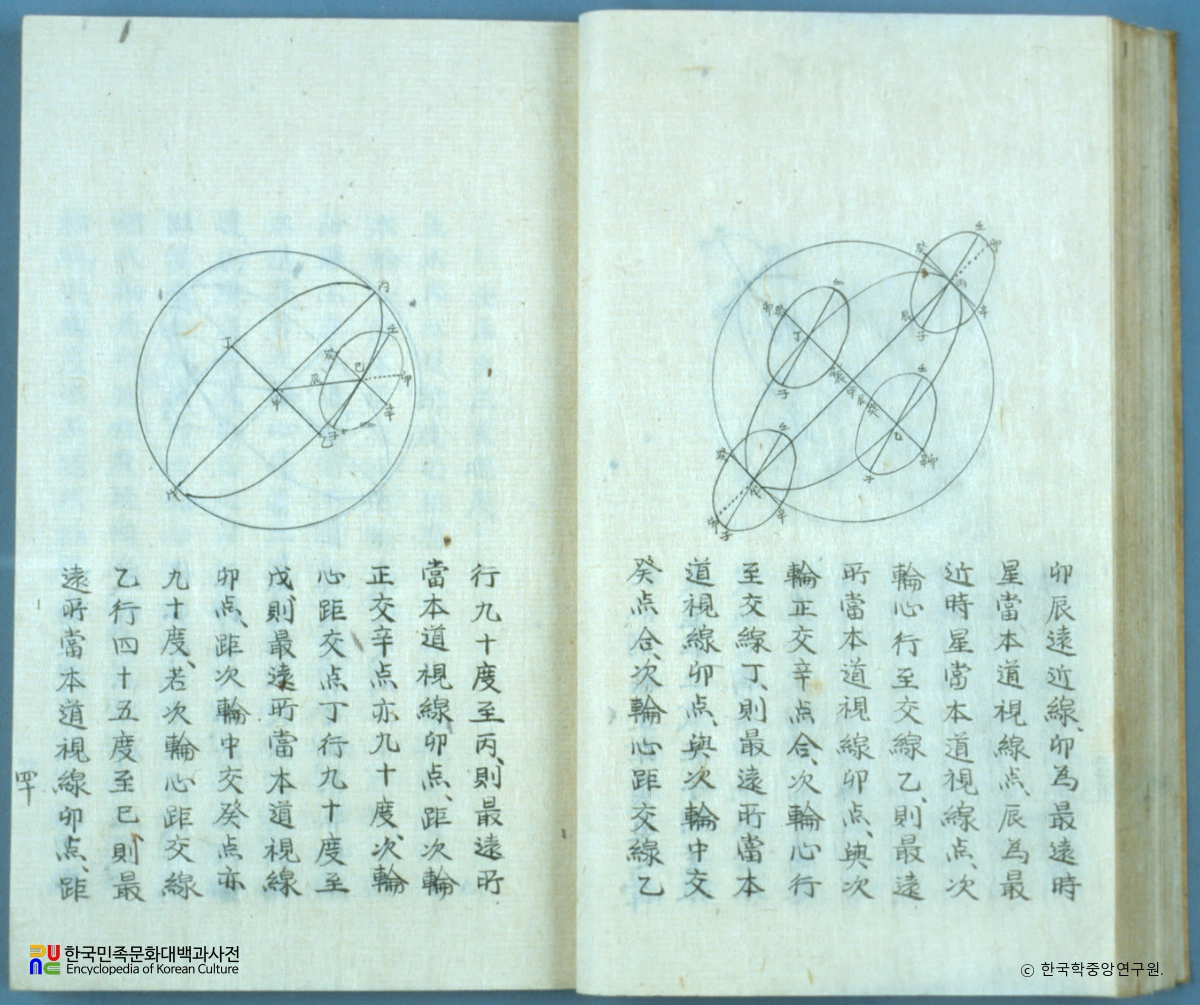 卯辰遠近線、卯為最遠時
星當本道視線点、辰為最
近時星當本道視線点、次
輪心行至交線乙、則最遠
所當本道視線卯点、與次
輪正交辛点合、次輪心行
至交線丁、則最遠所當本
道視線卯点、與次輪中交
癸点合、次輪心距交線乙
行九十度至丙、則最遠所
當本道視線、卯点、距次輪
正交辛点亦九十度、次輪
心距交点丁行九十度至
戊、則最遠所當本道視線
卯点、距次輪中交癸点亦
九十度、若次輪心距交線
乙行四十五度至已、則最
遠所當本道視線卯点、距
한국민족문화대백과사전
Encyclopedia of Korean Culture
© 한국학중앙연구원.